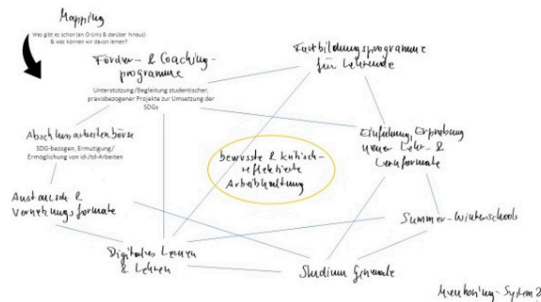 Mapping
Was gibt es schon (an Ö-Unis & darüber hinaus)
& was können wir davon lernen?
Förder- & Coaching-
programme
Unterstützung/Begleitung studentischer,
praxisbezogener Projekte zur Umsetzung der
SDGs
Fortbildungsprogramme
für Lehrende
Abschlussarbeitenbörse
SDG-bezogen, Ermutigung/
Ermöglichung von id-/td-Arbeiten
Einführung, Erprobung
neuer Lehr- &
Lernformate
bewusste & kritisch-
reflektierte
Arbeitshaltung
Austausch &
Vernetzungsformate
Summer-Winterschools
Digitales Lernen
& Lehren
Studium Generale
Mentoring-System?